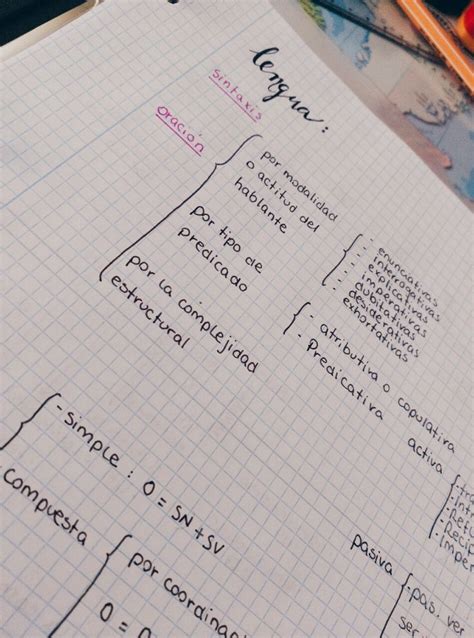 lengua:
sintaxis
oración
por modalidad
o actitud del
hablante
- enunciativas
- interrogativas
- explicativas
- imperativas
- dubitativas
- desiderativas
- exhortativas
por tipo de
predicado
- atributiva o copulativa
- Predicativa
activa
pasiva
- pas.
ser
por la complejidad
estructural
- simple : O = SN + SV
compuesta
por
O =